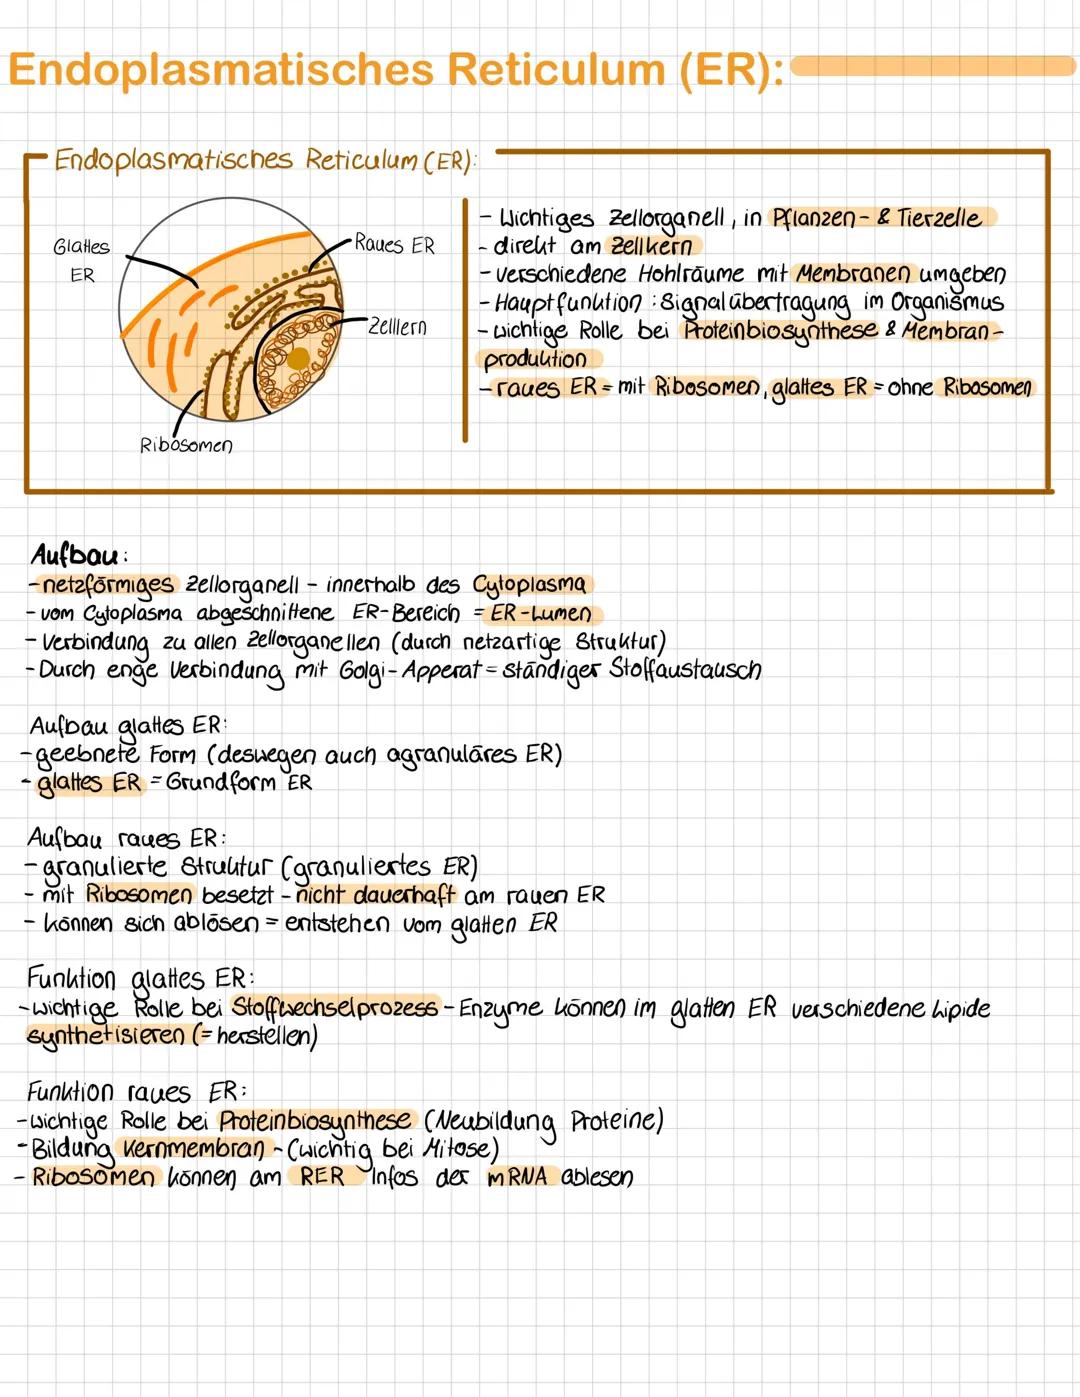 Endoplasmatisches Reticulum (ER):
Endoplasmatisches Reticulum (ER):
Glattes
ER
Raues ER
Zellkern
Ribosomen
- Wichtiges Zellorganell, in Pflanzen- & Tierzelle
- direkt am Zellkern
- verschiedene Hohlräume mit Membranen umgeben
- Hauptfunktion: Signalübertragung im Organismus
- wichtige Rolle bei Proteinbiosynthese & Membran-
produktion
- raues ER = mit Ribosomen, glattes ER = ohne Ribosomen
Aufbau:
- netzförmiges Zellorganell - innerhalb des Cytoplasma
- vom Cytoplasma abgeschnittene ER-Bereich = ER-Lumen
- Verbindung zu allen Zellorganellen (durch netzartige Struktur)
- Durch enge Verbindung mit Golgi-Apperat = ständiger Stoffaustausch
Aufbau glattes ER:
- geebnete Form (deswegen auch agranuläres ER)
- glattes ER = Grundform ER
Aufbau raues ER:
- granulierte Struktur (granuliertes ER)
- mit Ribosomen besetzt - nicht dauerhaft am rauen ER
- können sich ablösen = entstehen vom glatten ER
Funktion glattes ER:
- wichtige Rolle bei Stoffwechselprozess - Enzyme können im glatten ER verschiedene Lipide
synthetisieren (= herstellen)
Funktion raues ER:
- wichtige Rolle bei Proteinbiosynthese (Neubildung Proteine)
- Bildung Kernmembran - (wichtig bei Mitose)
- Ribosomen können am RER Infos der mRNA ablesen